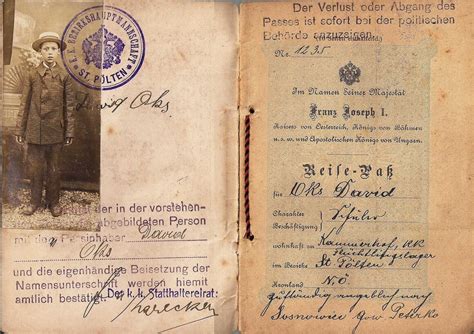 K. K. BEZIRKSHAUPTMANNSCHAFT
ST. PÖLTEN
David Oks
der in der vorstehen-
abgebildeten Person
mit dem Passinhaber David
Oks
und die eigenhändige Beisetzung der
Namensunterschrift werden hiermit
amtlich bestätigt.
Der k. k. Statthaltereirat:
Der Verlust oder Abgang des
Passes ist sofort bei der politischen
Behörde anzuzeigen.
Nr. 1235
Im Namen Seiner Majestät
Franz Joseph I.
Kaisers von Oesterreich, Königs von Böhmen
u. s. w. und Apostolischen Königs von Ungarn.
Reise-Paß
für Oks David
Charakter
Beschäftigung
Schüler
wohnhaft in Kammerhof, kk
Flüchtlingslager
im Bezirke St. Pölten
Kronland N.Ö
giltwendig angeblich nach
Sosnowice gow